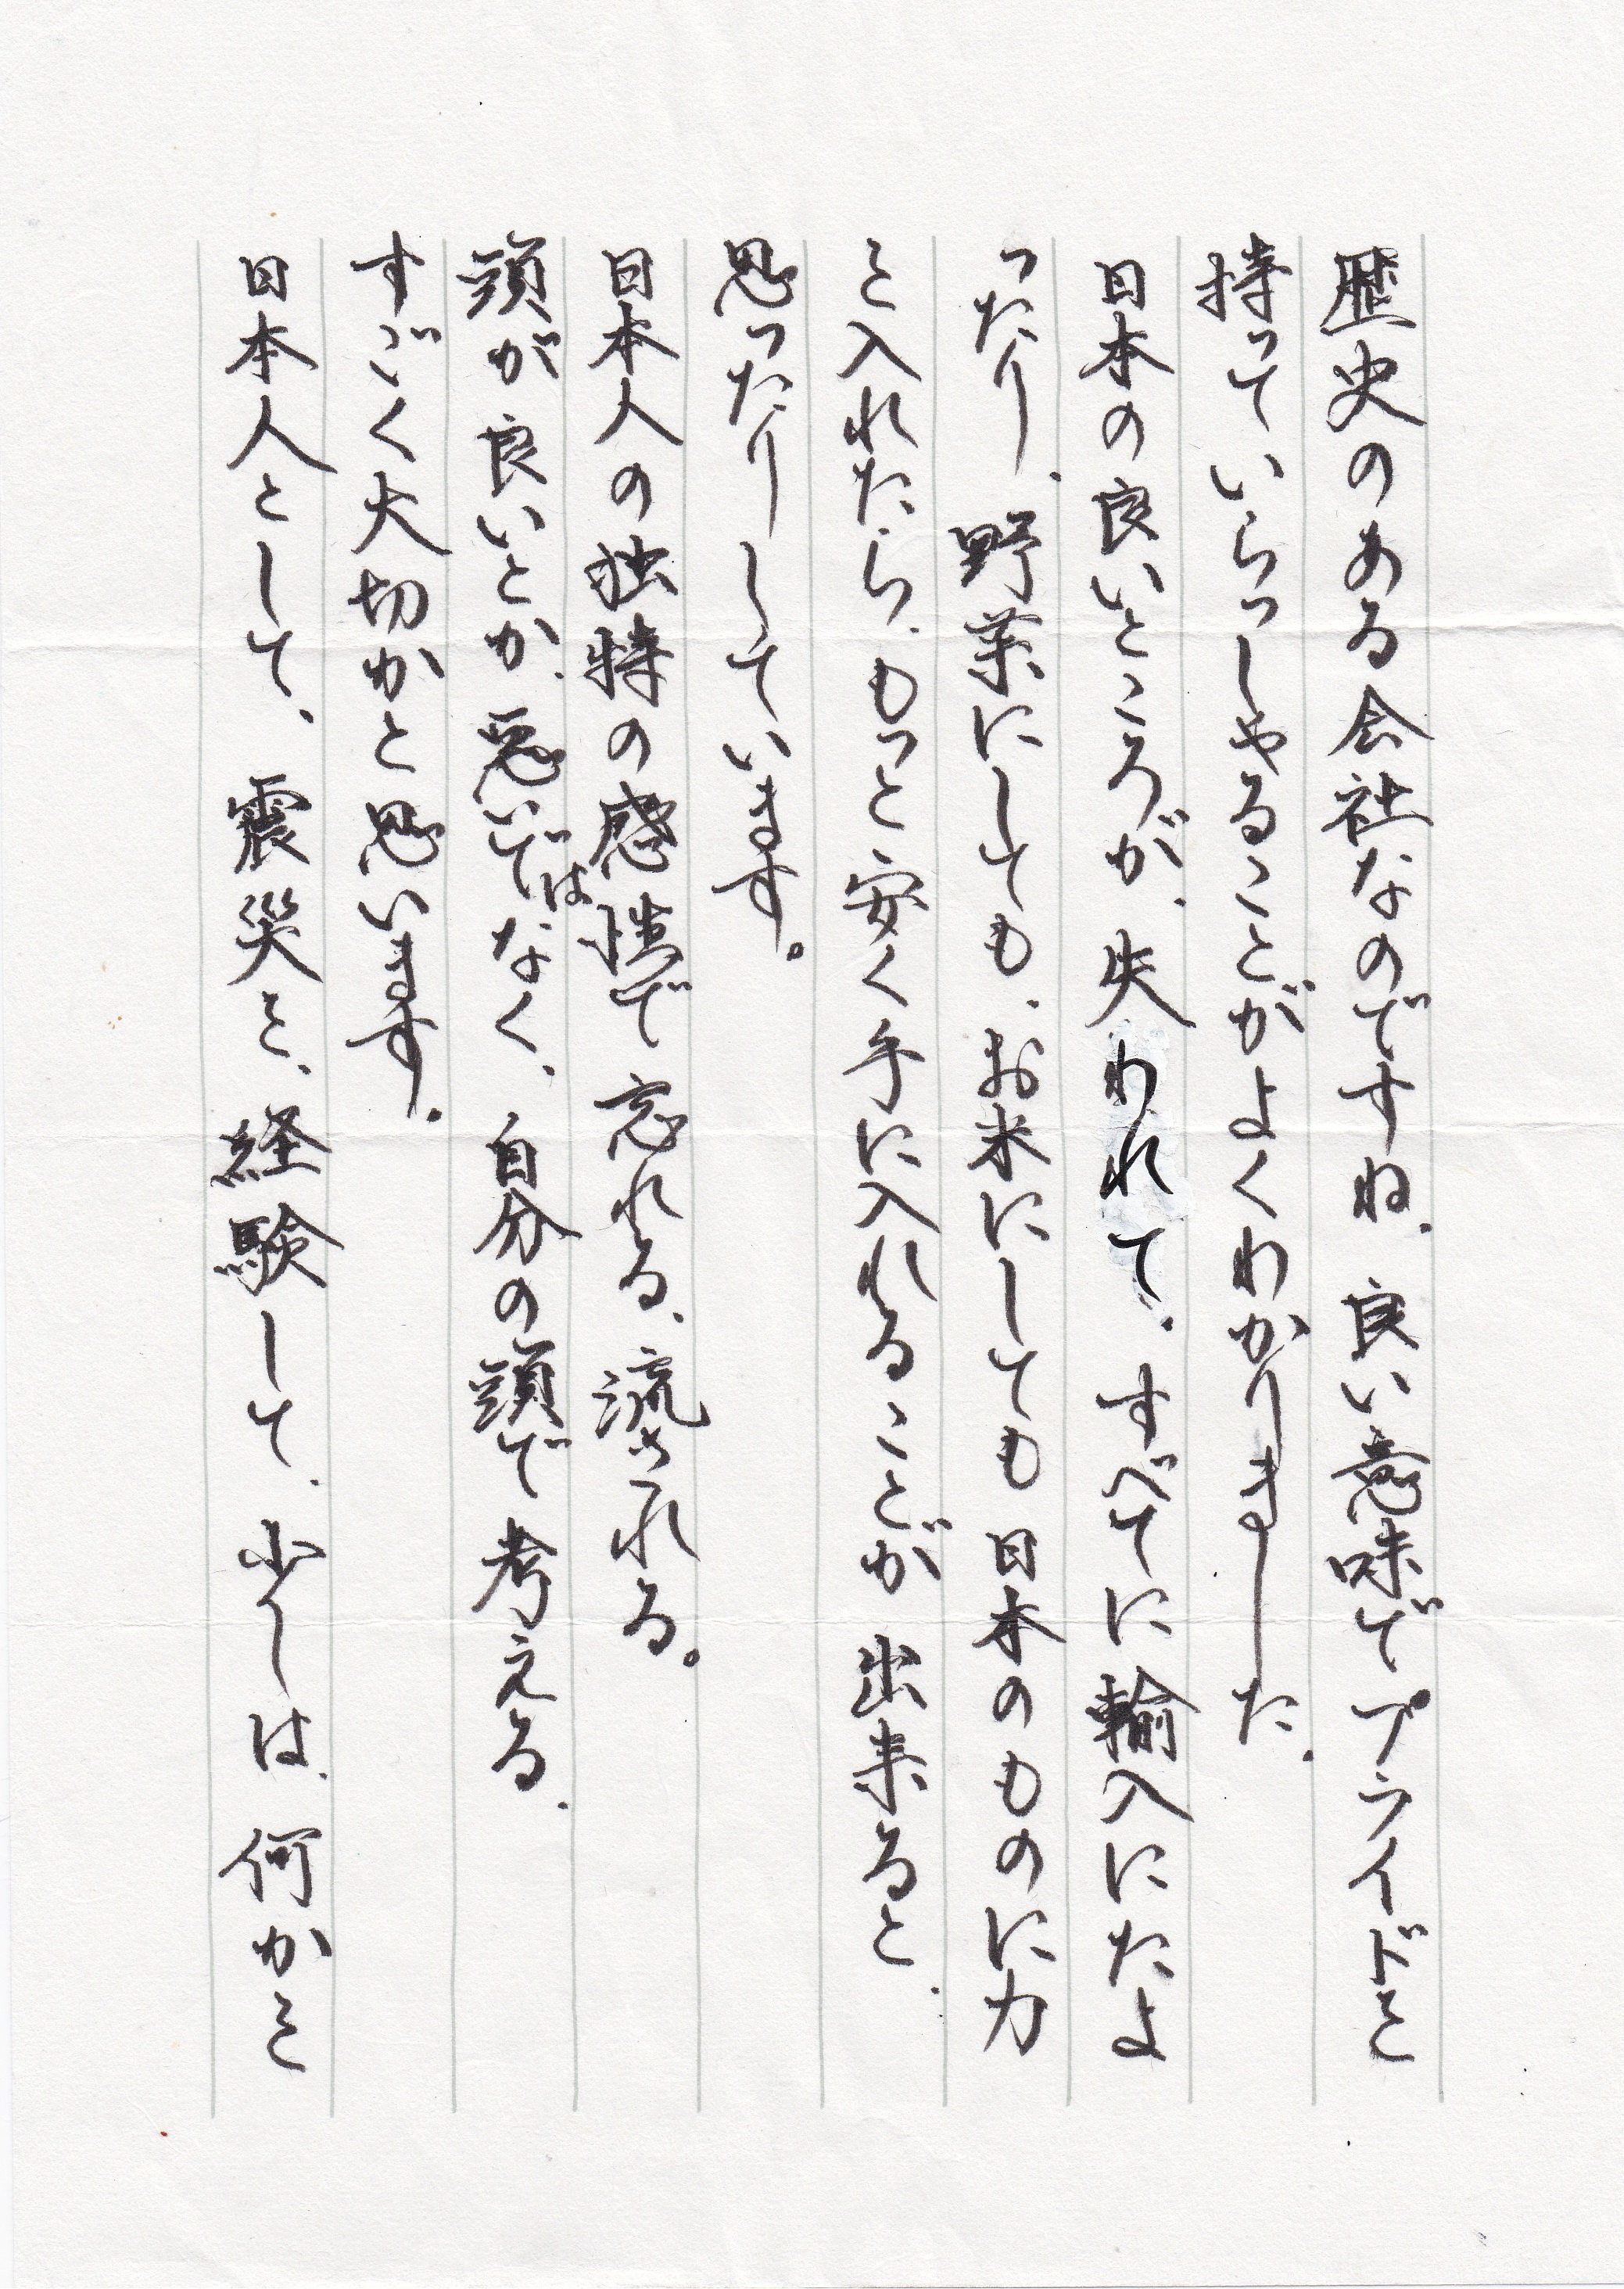 歴史のある会社なのですね、良い意味でプライドを
持っていらっしゃることがよくわかりました、
日本の良いところが、失われて、すべてに輸入にたよ
ったり、野菜にしても、お米にしても日本のものに力
を入れたら、もっと安く手に入れることが出来ると、
思ったりしています。
日本人の独特の感情で忘れる、流される。
頭が良いとか、悪いではなく、自分の頭で考える、
すごく大切かと思います、
日本人として、震災を、経験して、少しは、何かを